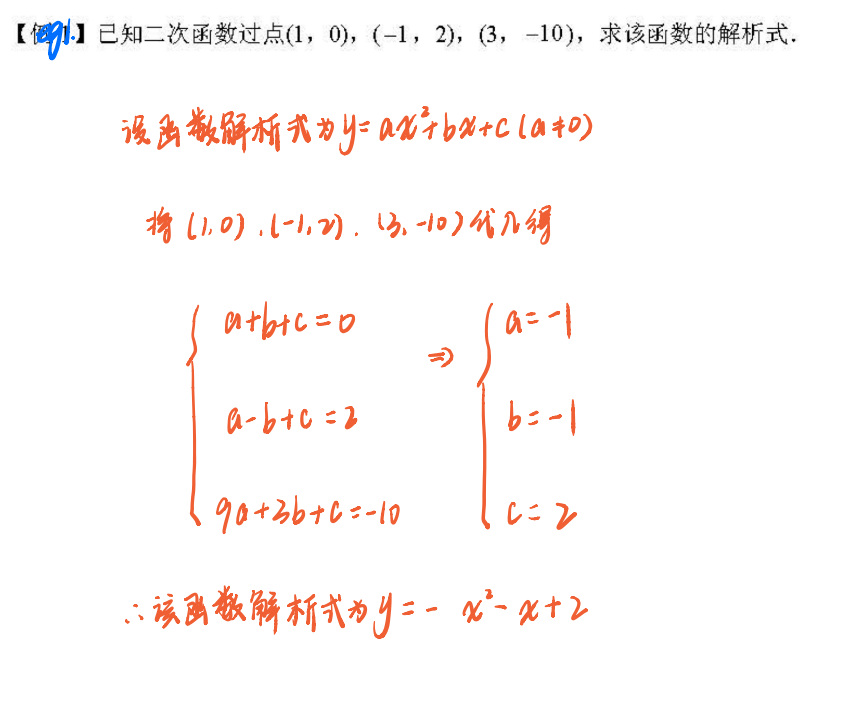 【例1.】已知二次函数过点(1，0)，(−1，2)，(3，−10)，求该函数的解析式．
设函数解析式为y=ax²+bx+c(a≠0)
将(1,0),(-1,2),(3,-10)代入得
a+b+c=0 ⇒ a=-1
a-b+c=2 b=-1
9a+3b+c=-10 c=2
∴该函数解析式为y=-x²-x+2